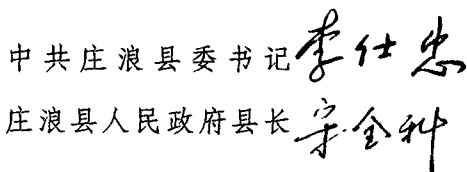 中共庄浪县委书记李仕忠
庄浪县人民政府县长宋全科